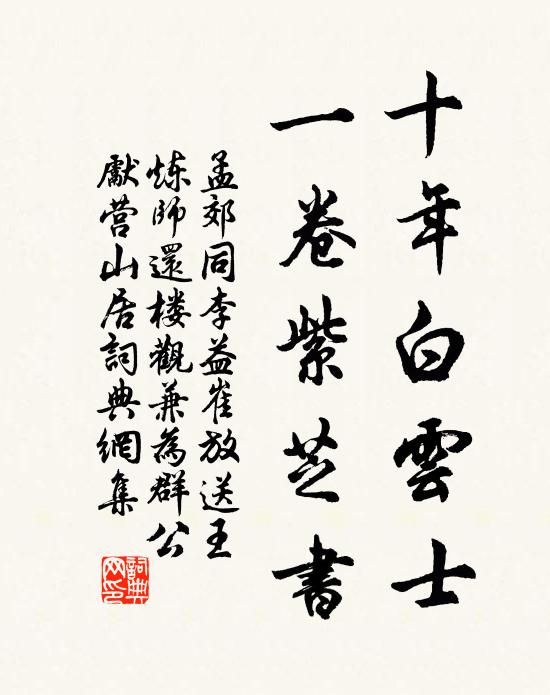 十年白雲士
一卷紫芝書
孟郊同李益崔放送王
炼師還楼觀兼為群公
獻营山居詞典網集
詞典网印